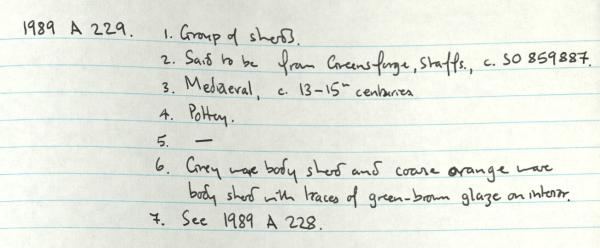 1989 A 229. 1. Group of sherds.
2. Said to be from Greensforge, Staffs., c. SO 859887.
3. Mediaeval, c. 13-15th centuries
4. Pottery.
5. —
6. Grey ware body sherd and coarse orange ware
body sherd with traces of green-brown glaze on interior.
7. See 1989 A 228.